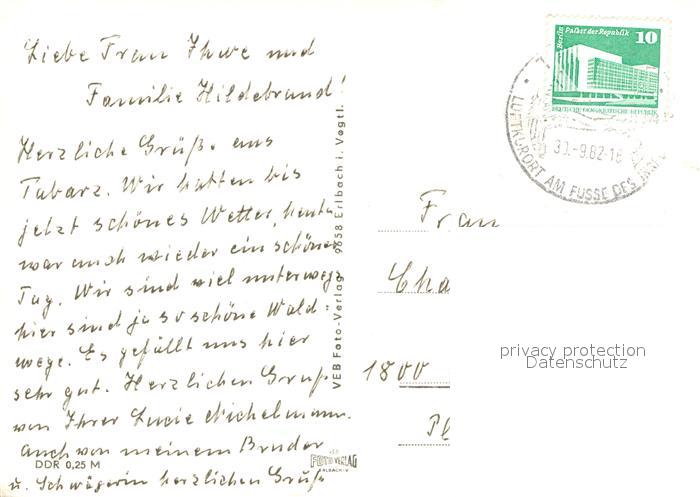 Liebe Frau Ihwe und
Familie Hildebrand!
Herzliche Grüße aus
Tabarz. Wir hatten bis
jetzt schönes Wetter, heute
war auch wieder ein schöner
Tag. Wir sind viel unterwegs
hier sind ja so schöne Wald-
wege. Es gefällt uns hier
sehr gut. Herzlichen Gruß
von Ihrer Lucie Michelmann.
Auch von meinem Bruder
u. Schwägerin herzlichen Gruß
DDR 0,25 M
VEB Foto-Verlag 9658 Erlbach i. Vogtl.
FOTO VERLAG
ERLBACH V
Berlin Palast der Republik 10
DEUTSCHE DEMOKRATISCHE REPUBLIK
30.-9.82-18
LUFTKURORT AM FUSSE DES
Frau
Cha
1800
Pl
privacy protection
Datenschutz